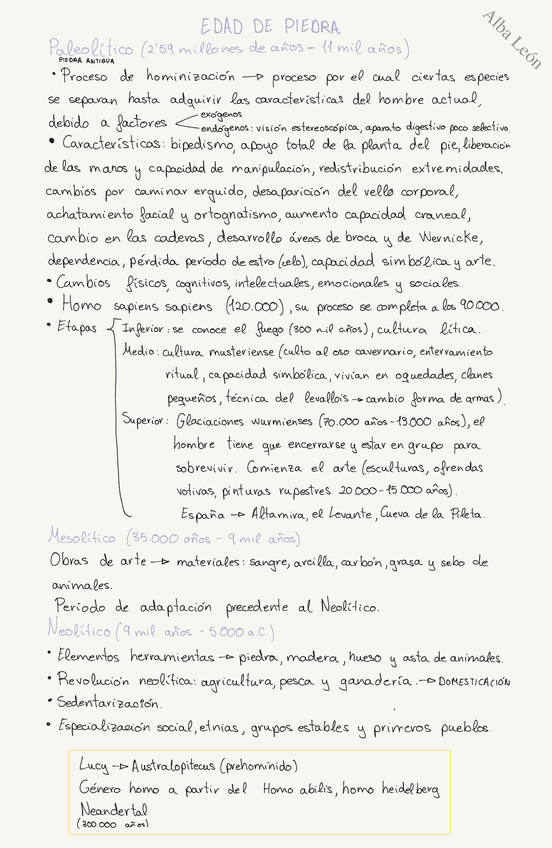 EDAD DE PIEDRA
Alba León
Paleolítico (2'59 millones de años - 11 mil años)
PIEDRA ANTIGUA
• Proceso de hominización → proceso por el cual ciertas especies
se separan hasta adquirir las características del hombre actual,
debido a factores
exógenos
endógenos: visión estereoscópica, aparato digestivo poco selectivo.
• Características: bipedismo, apoyo total de la planta del pie, liberación
de las manos y capacidad de manipulación, redistribución extremidades,
cambios por caminar erguido, desaparición del vello corporal,
achatamiento facial y ortognatismo, aumento capacidad craneal,
cambio en las caderas, desarrollo áreas de broca y de Wernicke,
dependencia, pérdida periodo de estro (celo), capacidad simbólica y arte.
• Cambios físicos, cognitivos, intelectuales, emocionales y sociales.
• Homo sapiens sapiens (120.000), su proceso se completa a los 90.000.
• Etapas { Inferior: se conoce el fuego (300 mil años), cultura lítica.
Medio: cultura musteriense (culto al oso cavernario, enterramiento
ritual, capacidad simbólica, vivían en oquedades, clanes
pequeños, técnica del levallois → cambio forma de armas).
Superior: Glaciaciones wurmienses (70.000 años - 13.000 años), el
hombre tiene que encerrarse y estar en grupo para
sobrevivir. Comienza el arte (esculturas, ofrendas
votivas, pinturas rupestres 20.000 - 15.000 años).
España → Altamira, el Levante, Cueva de la Pileta.
Mesolítico (35.000 años - 9 mil años)
Obras de arte → materiales: sangre, arcilla, carbón, grasa y sebo de
animales.
Periodo de adaptación precedente al Neolítico.
Neolítico (9 mil años - 5.000 a.C.)
• Elementos herramientas → piedra, madera, hueso y asta de animales.
• Revolución neolítica: agricultura, pesca y ganadería. → DOMESTICACIÓN
• Sedentarización.
• Especialización social, etnias, grupos estables y primeros pueblos.
Lucy → Australopitecus (prehomínido)
Género homo a partir del Homo abilis, homo heidelberg
Neandertal
(300.000 años)